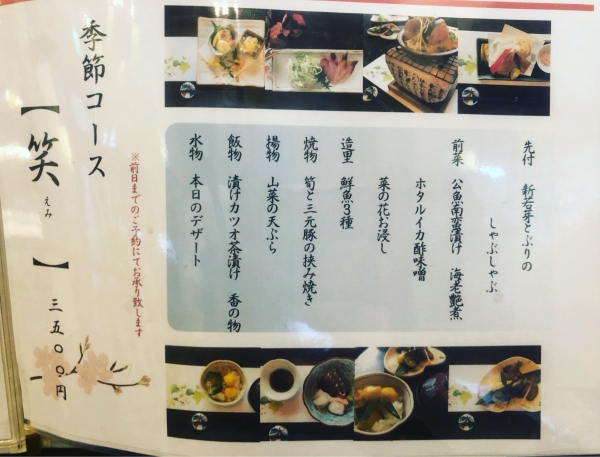 季節コース
【笑】
えみ
三五〇〇円
※前日までのご予約にてお承り致します
先付 新若芽とぶりの
しゃぶしゃぶ
前菜 公魚南蛮漬け 海老艶煮
ホタルイカ酢味噌
菜の花お浸し
造里 鮮魚3種
焼物 筍と三元豚の挟み焼き
揚物 山菜の天ぷら
飯物 漬けカツオ茶漬け 香の物
水物 本日のデザート